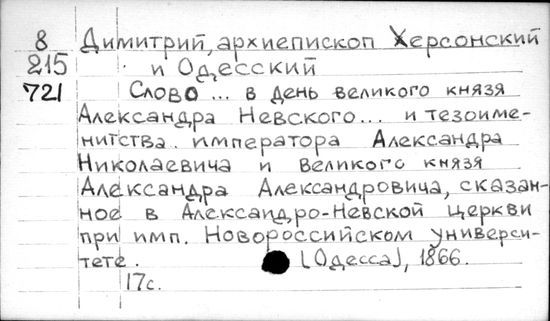 8 Димитрий, архиепископ Херсонский
215 и Одесский
721 Слово... в день великого князя
Александра Невского... и тезоиме-
нитства императора Александра
Николаевича и великого князя
Александра Александровича, сказан-
ное в Александро-Невской церкви
при имп. Новороссийском универси-
тете. [Одесса], 1866.
17с.